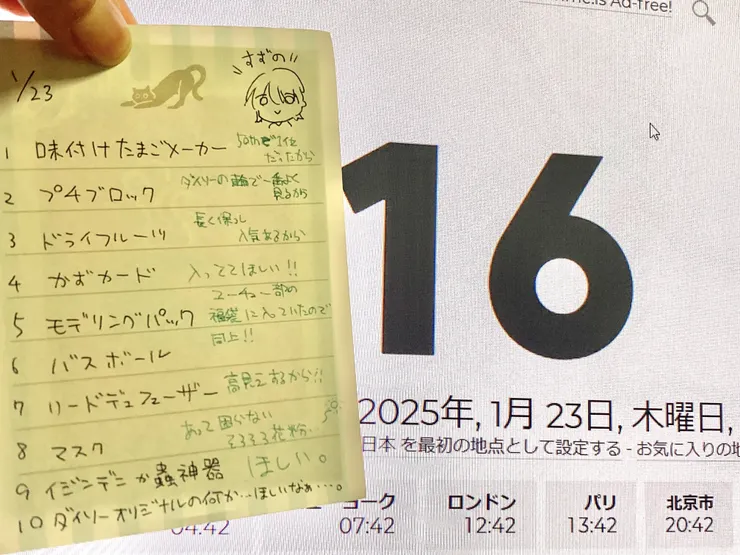 1/23
すずの!!
1 味付けたまごメーカー 50thで1位
だったから
2 プチブロック ダイソーの で一番よく
見るから
3 ドライフルーツ 長く保つし
人気あるから
4 かずカード 入っててほしい!!
5 モデリングパック ユーチューバーの
福袋に入っていたので
6 バスボール 同上!!
7 リードデュフューザー 高見えするから!!
8 マスク あって困らない
そろそろ花粉
9 イジンデンか蟲神器 ほしい。
10 ダイソーオリジナルの何か…ほしいなぁ…。
Ad-free!
16
2025年, 1月 23日, 木曜日,
日本 を最初の地点として設定する - お気に入りの
04:42
ーヨーク
07:42
ロンドン
12:42
パリ
13:42
北京市
20:42